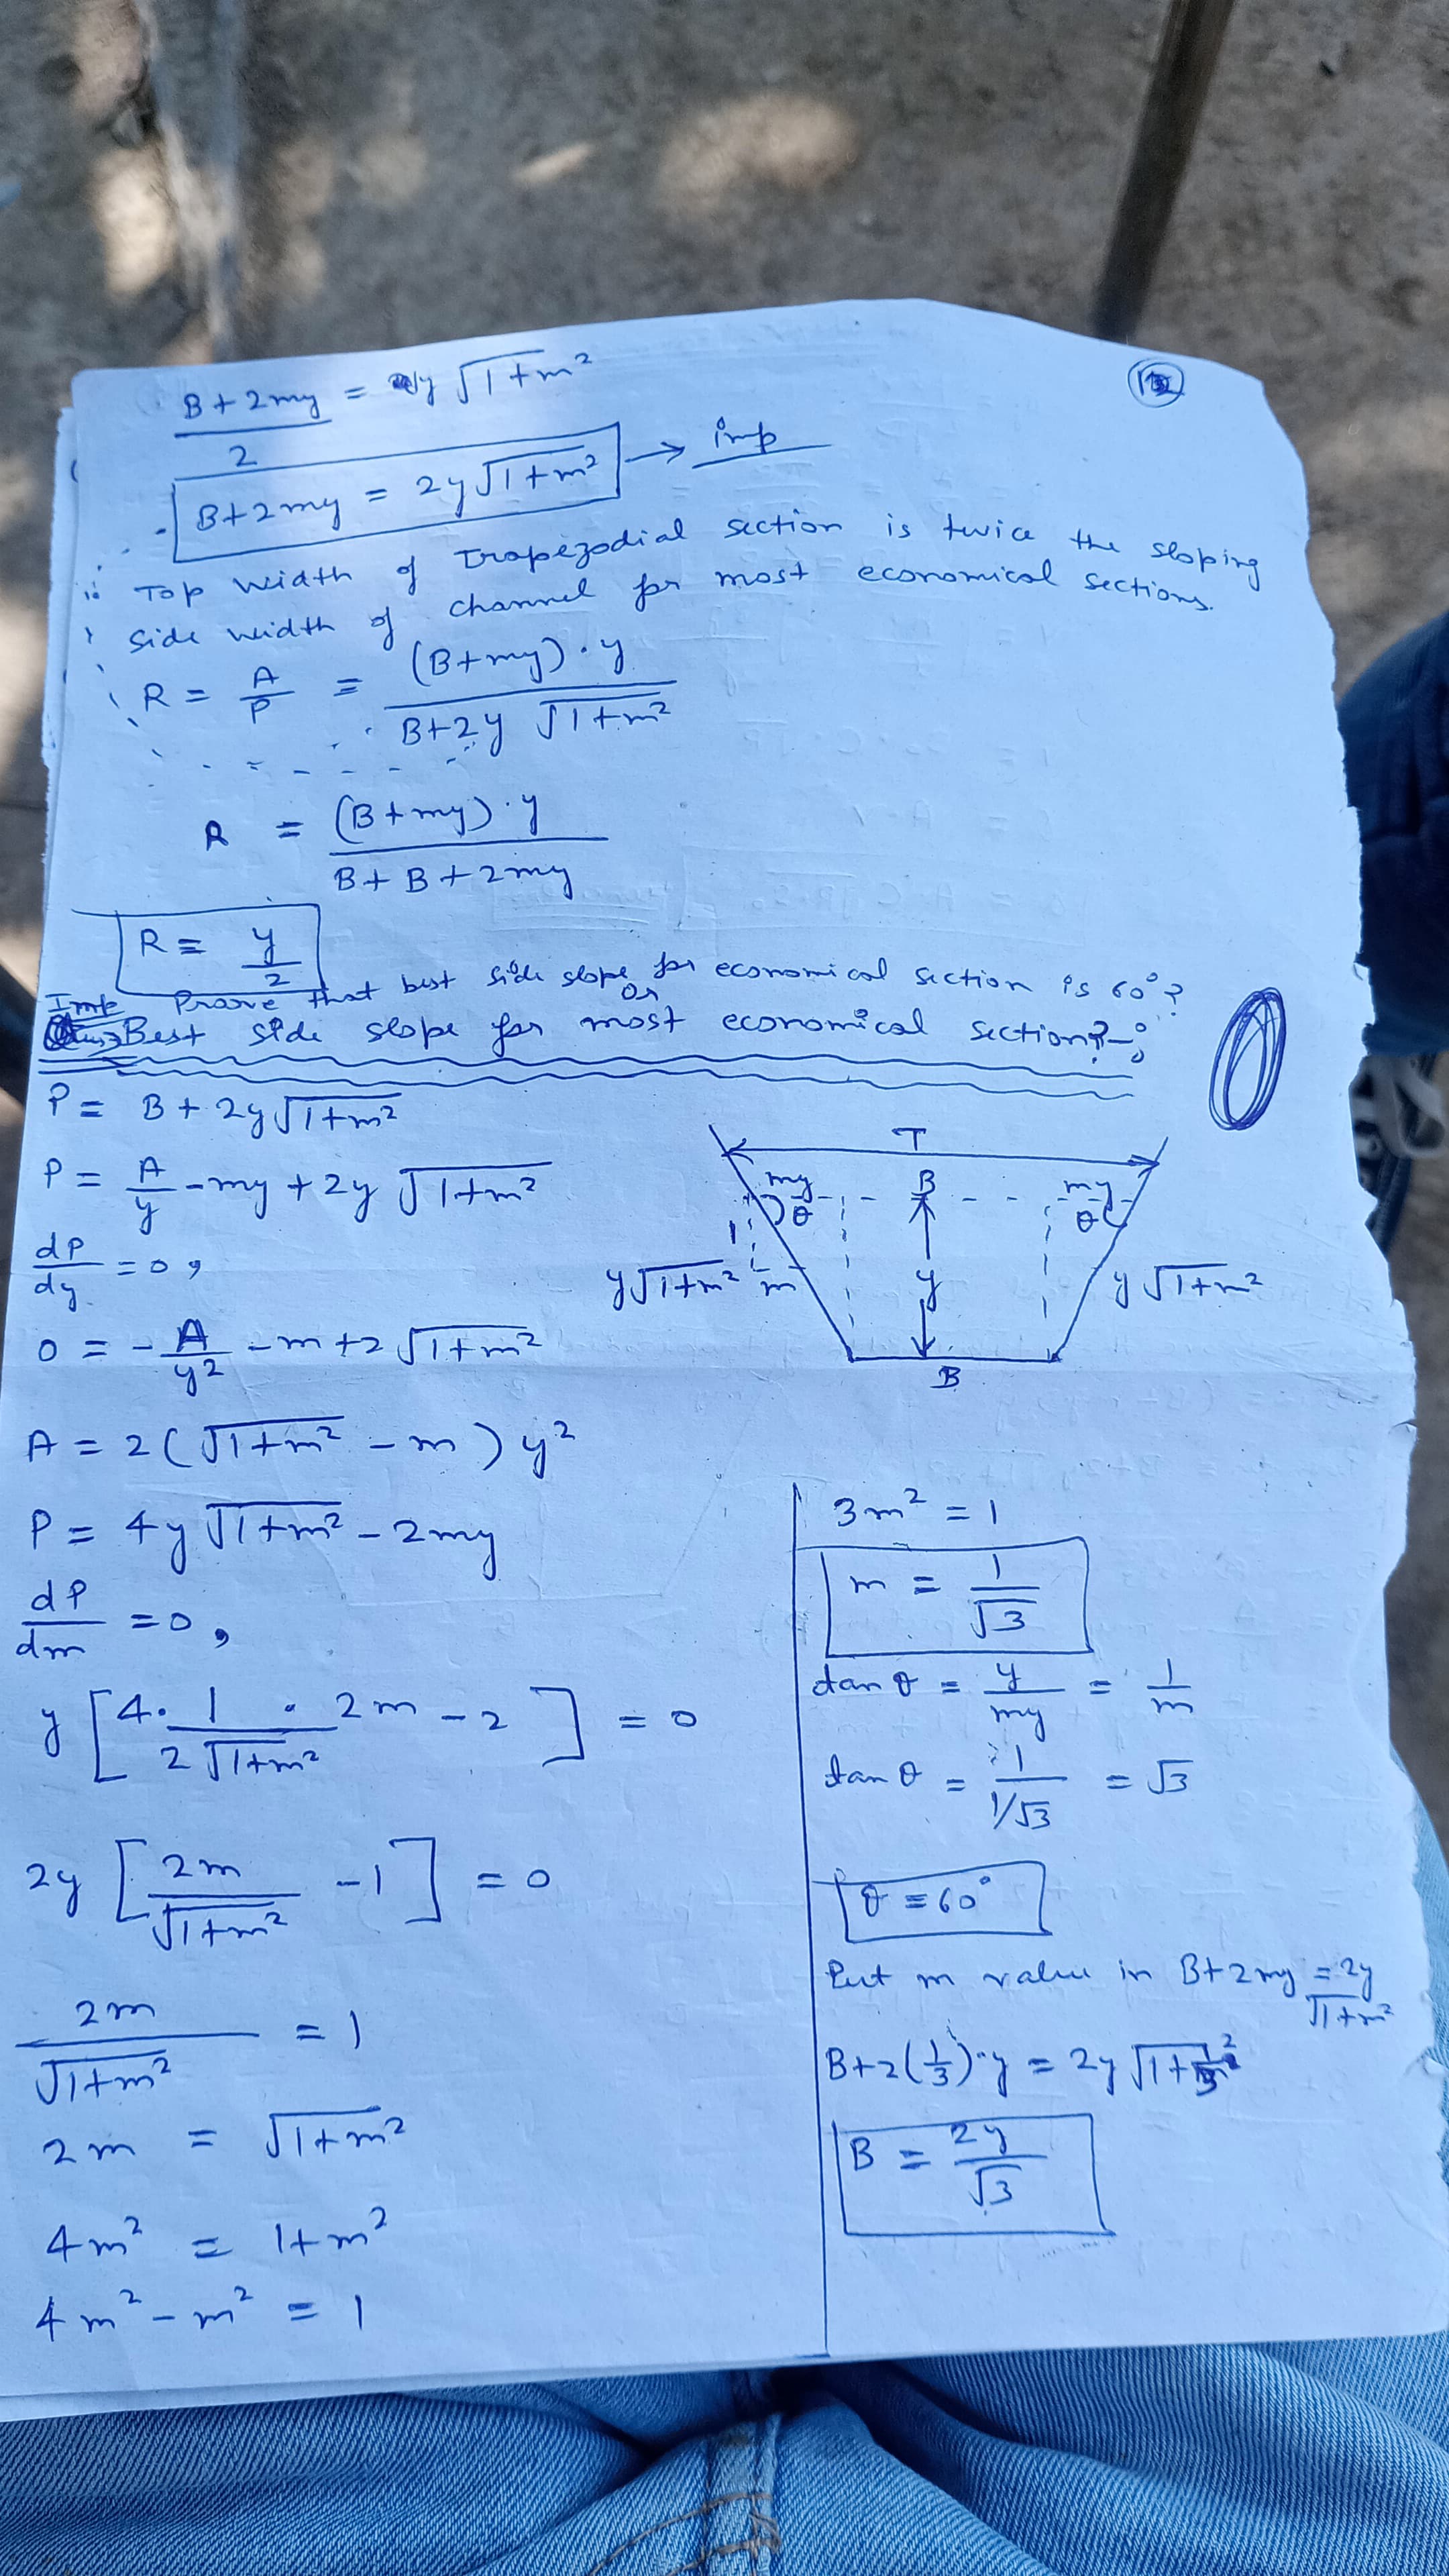 (B + 2my)/2 = y √(1+m²)
B+2my = 2y√(1+m²) → imp
∴ Top width of Trapezodial section is twice the sloping
side width of channel for most economical sections.
R = A/P = (B+my)·y / (B+2y √(1+m²))
R = (B+my)·y / (B+B+2my)
R = y/2
Imp Prove that best side slope for economical section is 60°?
or
Best side slope for most economical section?-:
P = B + 2y√(1+m²)
P = A/y - my + 2y √(1+m²)
dP/dy = 0,
0 = -A/y² - m + 2√(1+m²)
A = 2(√(1+m²) - m) y²
P = 4y√(1+m²) - 2my
dP/dm = 0,
y [4· 1/(2√(1+m²)) · 2m - 2] = 0
2y [2m/√(1+m²) - 1] = 0
2m/√(1+m²) = 1
2m = √(1+m²)
4m² = 1+m²
4m² - m² = 1
T
my B my
θ θ
1
y√(1+m²) m y y√(1+m²)
B
3m² = 1
m = 1/√3
tan θ = y/my = 1/m
tan θ = 1/(1/√3) = √3
θ = 60°
Put m value in B+2my = 2y
√(1+m²)
B+2(1/3)·y = 2y
B = 2y/√3